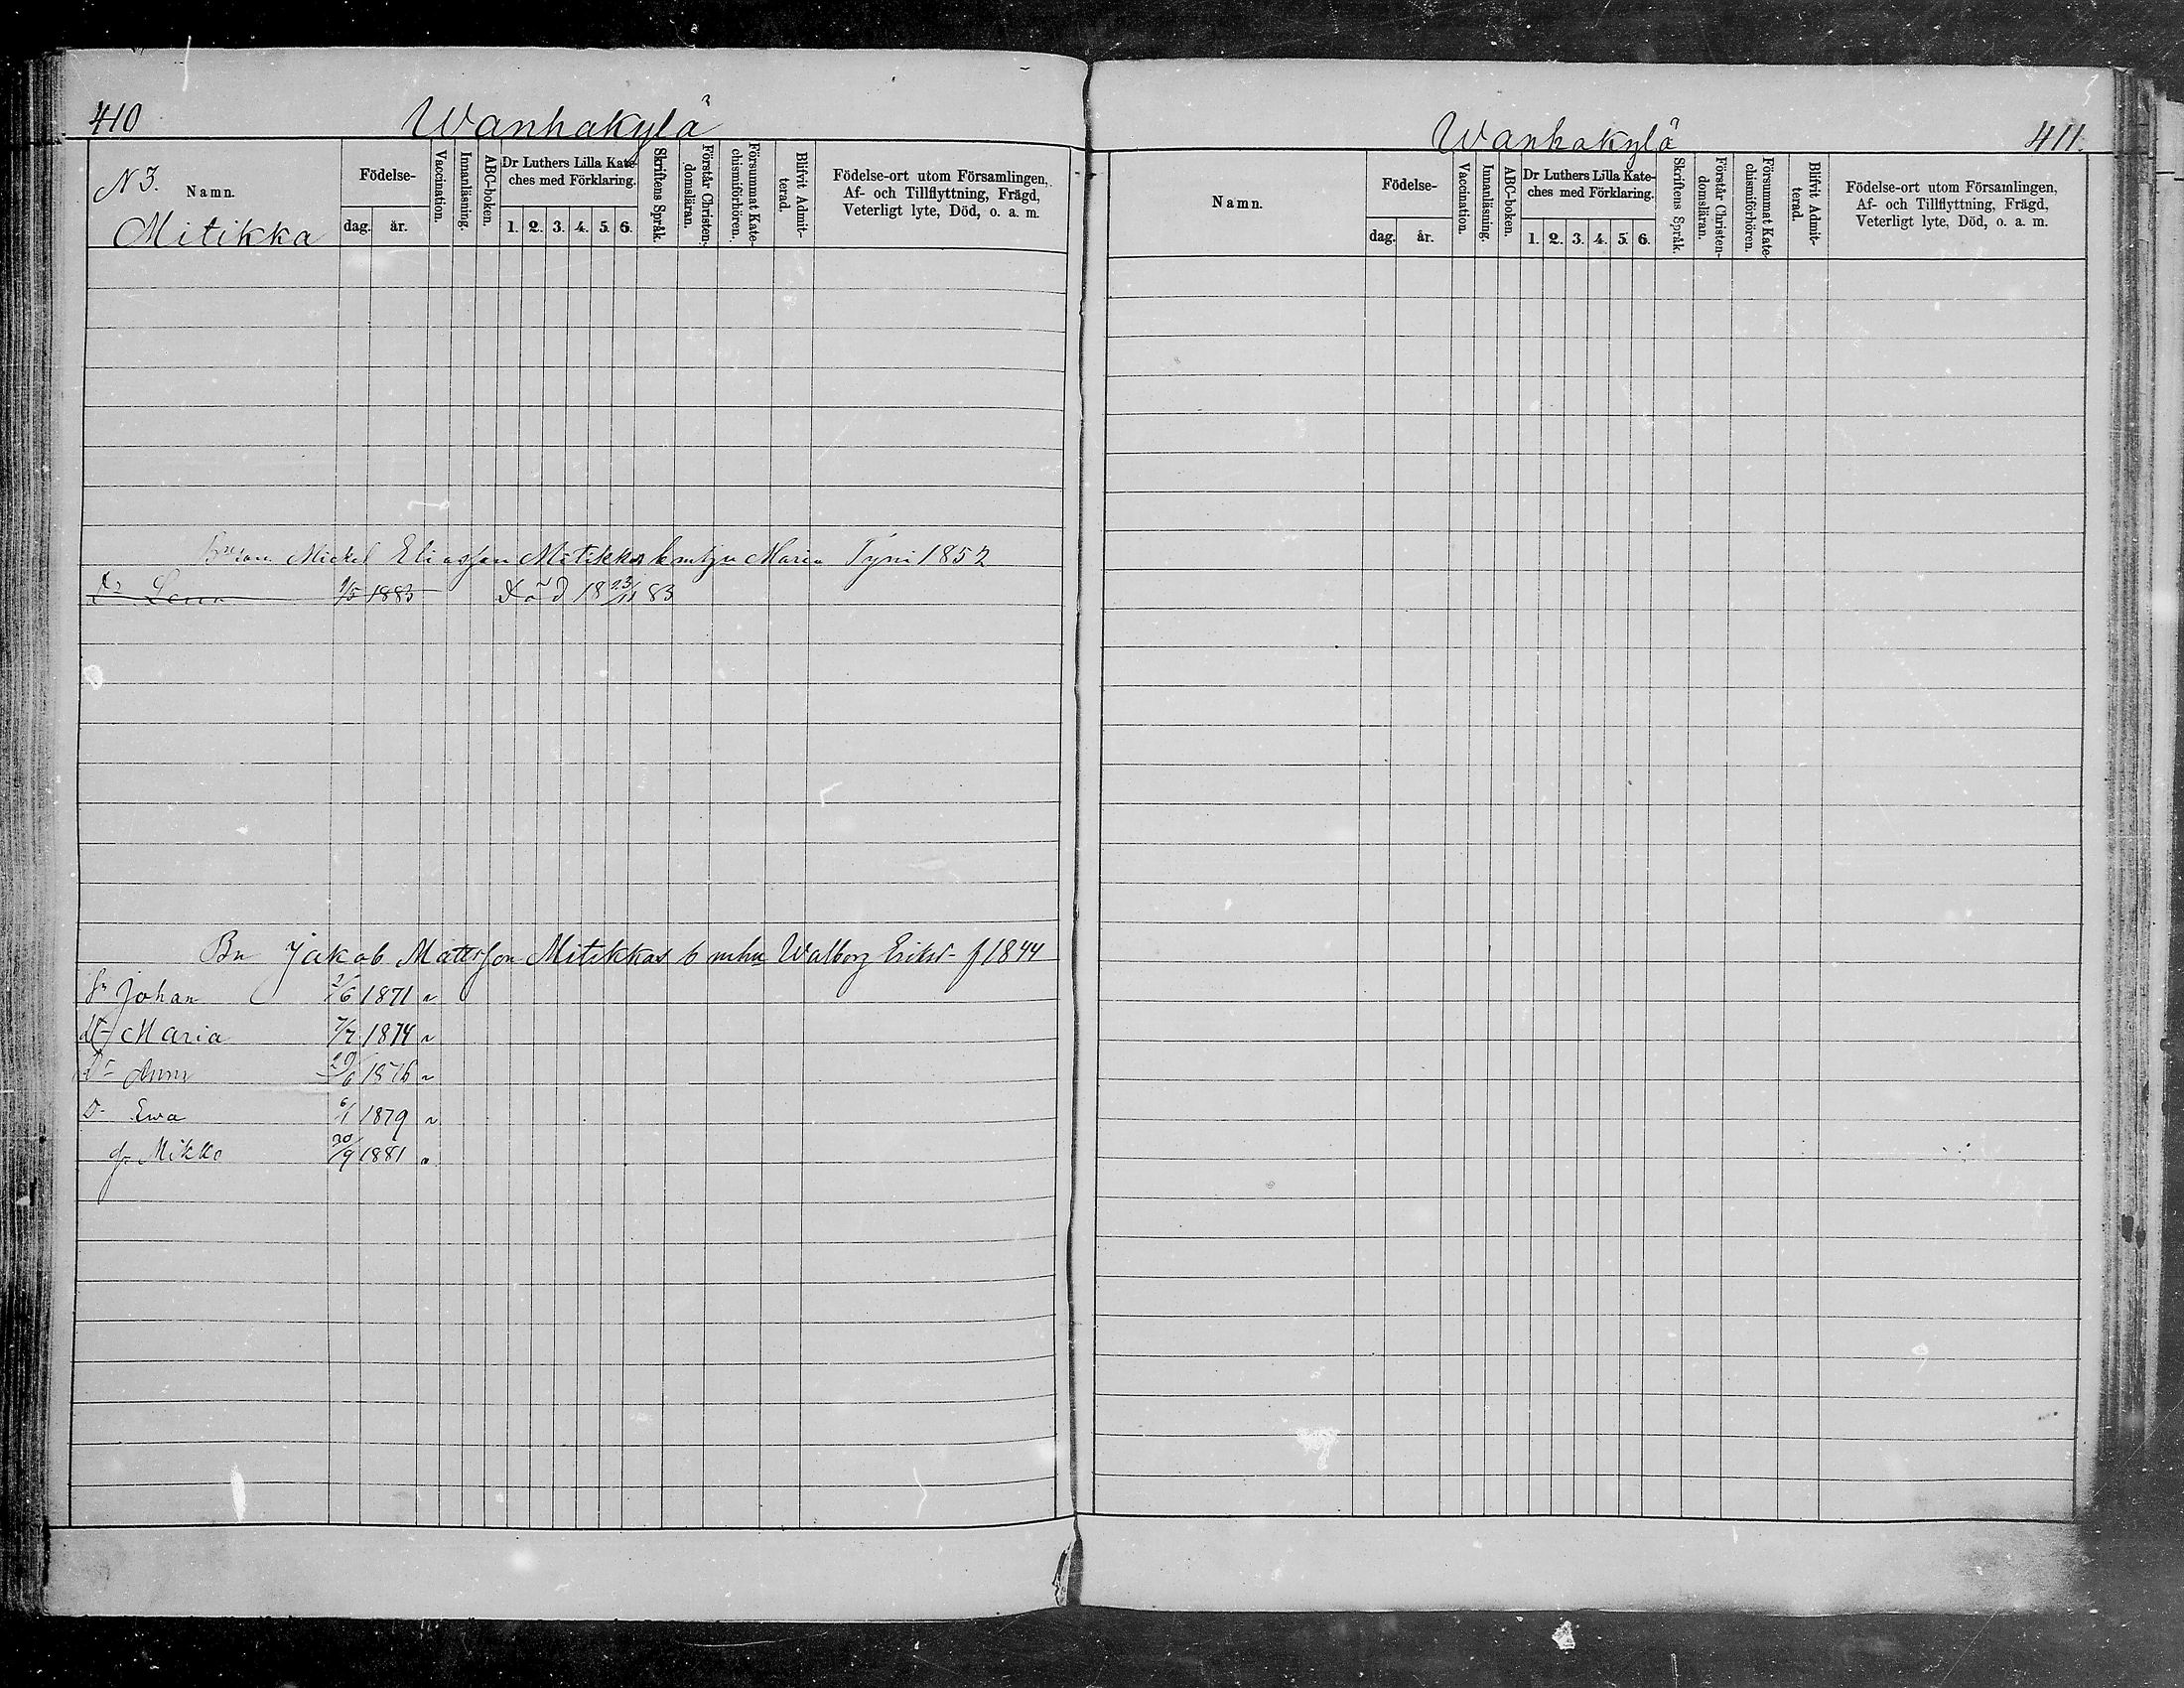 410 Wanhakylä
N 3.
Namn.
Mitikka
Födelse-
dag. år.
Vaccination.
Innanläsning.
ABC-boken.
Dr Luthers Lilla Kate-
ches med Förklaring.
1. 2. 3. 4. 5. 6.
Skriftens Språk.
Förstår Christen-
domsläran.
Försummat Kate-
chismiförhören.
Blifvit Admit-
terad.
Födelse-ort utom Församlingen,
Af- och Tillflyttning, Frägd,
Veterligt lyte, Död, o. a. m.
Mickel Eliasson Mitikkas Maria Tyni 1852
Dr Lena 1/5 1883 Död 18 23/11 83
Bn Jakob Mattsson Mitikkas b mhu Walborg Eriksd- f 1844
Sn Johan 2/6 1871
Dr Maria 7/7 1874
Dr Anna 20/6 1876
Dr Ewa 6/1 1879
Sn Mikko 20/9 1881
Wanhakylä 411.
Namn.
Födelse-
dag. år.
Vaccination.
Innanläsning.
ABC-boken.
Dr Luthers Lilla Kate-
ches med Förklaring.
1. 2. 3. 4. 5. 6.
Skriftens Språk.
Förstår Christen-
domsläran.
Försummat Kate-
chismiförhören.
Blifvit Admit-
terad.
Födelse-ort utom Församlingen,
Af- och Tillflyttning, Frägd,
Veterligt lyte, Död, o. a. m.